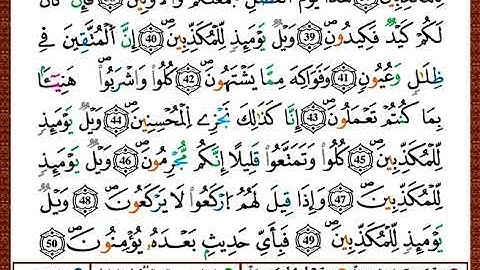 لِّلْمُكَذِّبِينَ هَٰذَا يَوْمُ ٱلْفَصْلِ جَمَعْنَٰكُمْ وَٱلْأَوَّلِينَ 38 فَإِن كَانَ
لَكُمْ كَيْدٌ فَكِيدُونِ 39 وَيْلٌ يَوْمَئِذٍ لِّلْمُكَذِّبِينَ 40 إِنَّ ٱلْمُتَّقِينَ فِى
ظِلَٰلٍ وَعُيُونٍ 41 وَفَوَٰكِهَ مِمَّا يَشْتَهُونَ 42 كُلُوا۟ وَٱشْرَبُوا۟ هَنِيٓـًٔۢا
بِمَا كُنتُمْ تَعْمَلُونَ 43 إِنَّا كَذَٰلِكَ نَجْزِى ٱلْمُحْسِنِينَ 44 وَيْلٌ يَوْمَئِذٍ
لِّلْمُكَذِّبِينَ 45 كُلُوا۟ وَتَمَتَّعُوا۟ قَلِيلًا إِنَّكُم مُّجْرِمُونَ 46 وَيْلٌ يَوْمَئِذٍ
لِّلْمُكَذِّبِينَ 47 وَإِذَا قِيلَ لَهُمُ ٱرْكَعُوا۟ لَا يَرْكَعُونَ 48 وَيْلٌ
يَوْمَئِذٍ لِّلْمُكَذِّبِينَ 49 فَبِأَىِّ حَدِيثٍۭ بَعْدَهُۥ يُؤْمِنُونَ 50